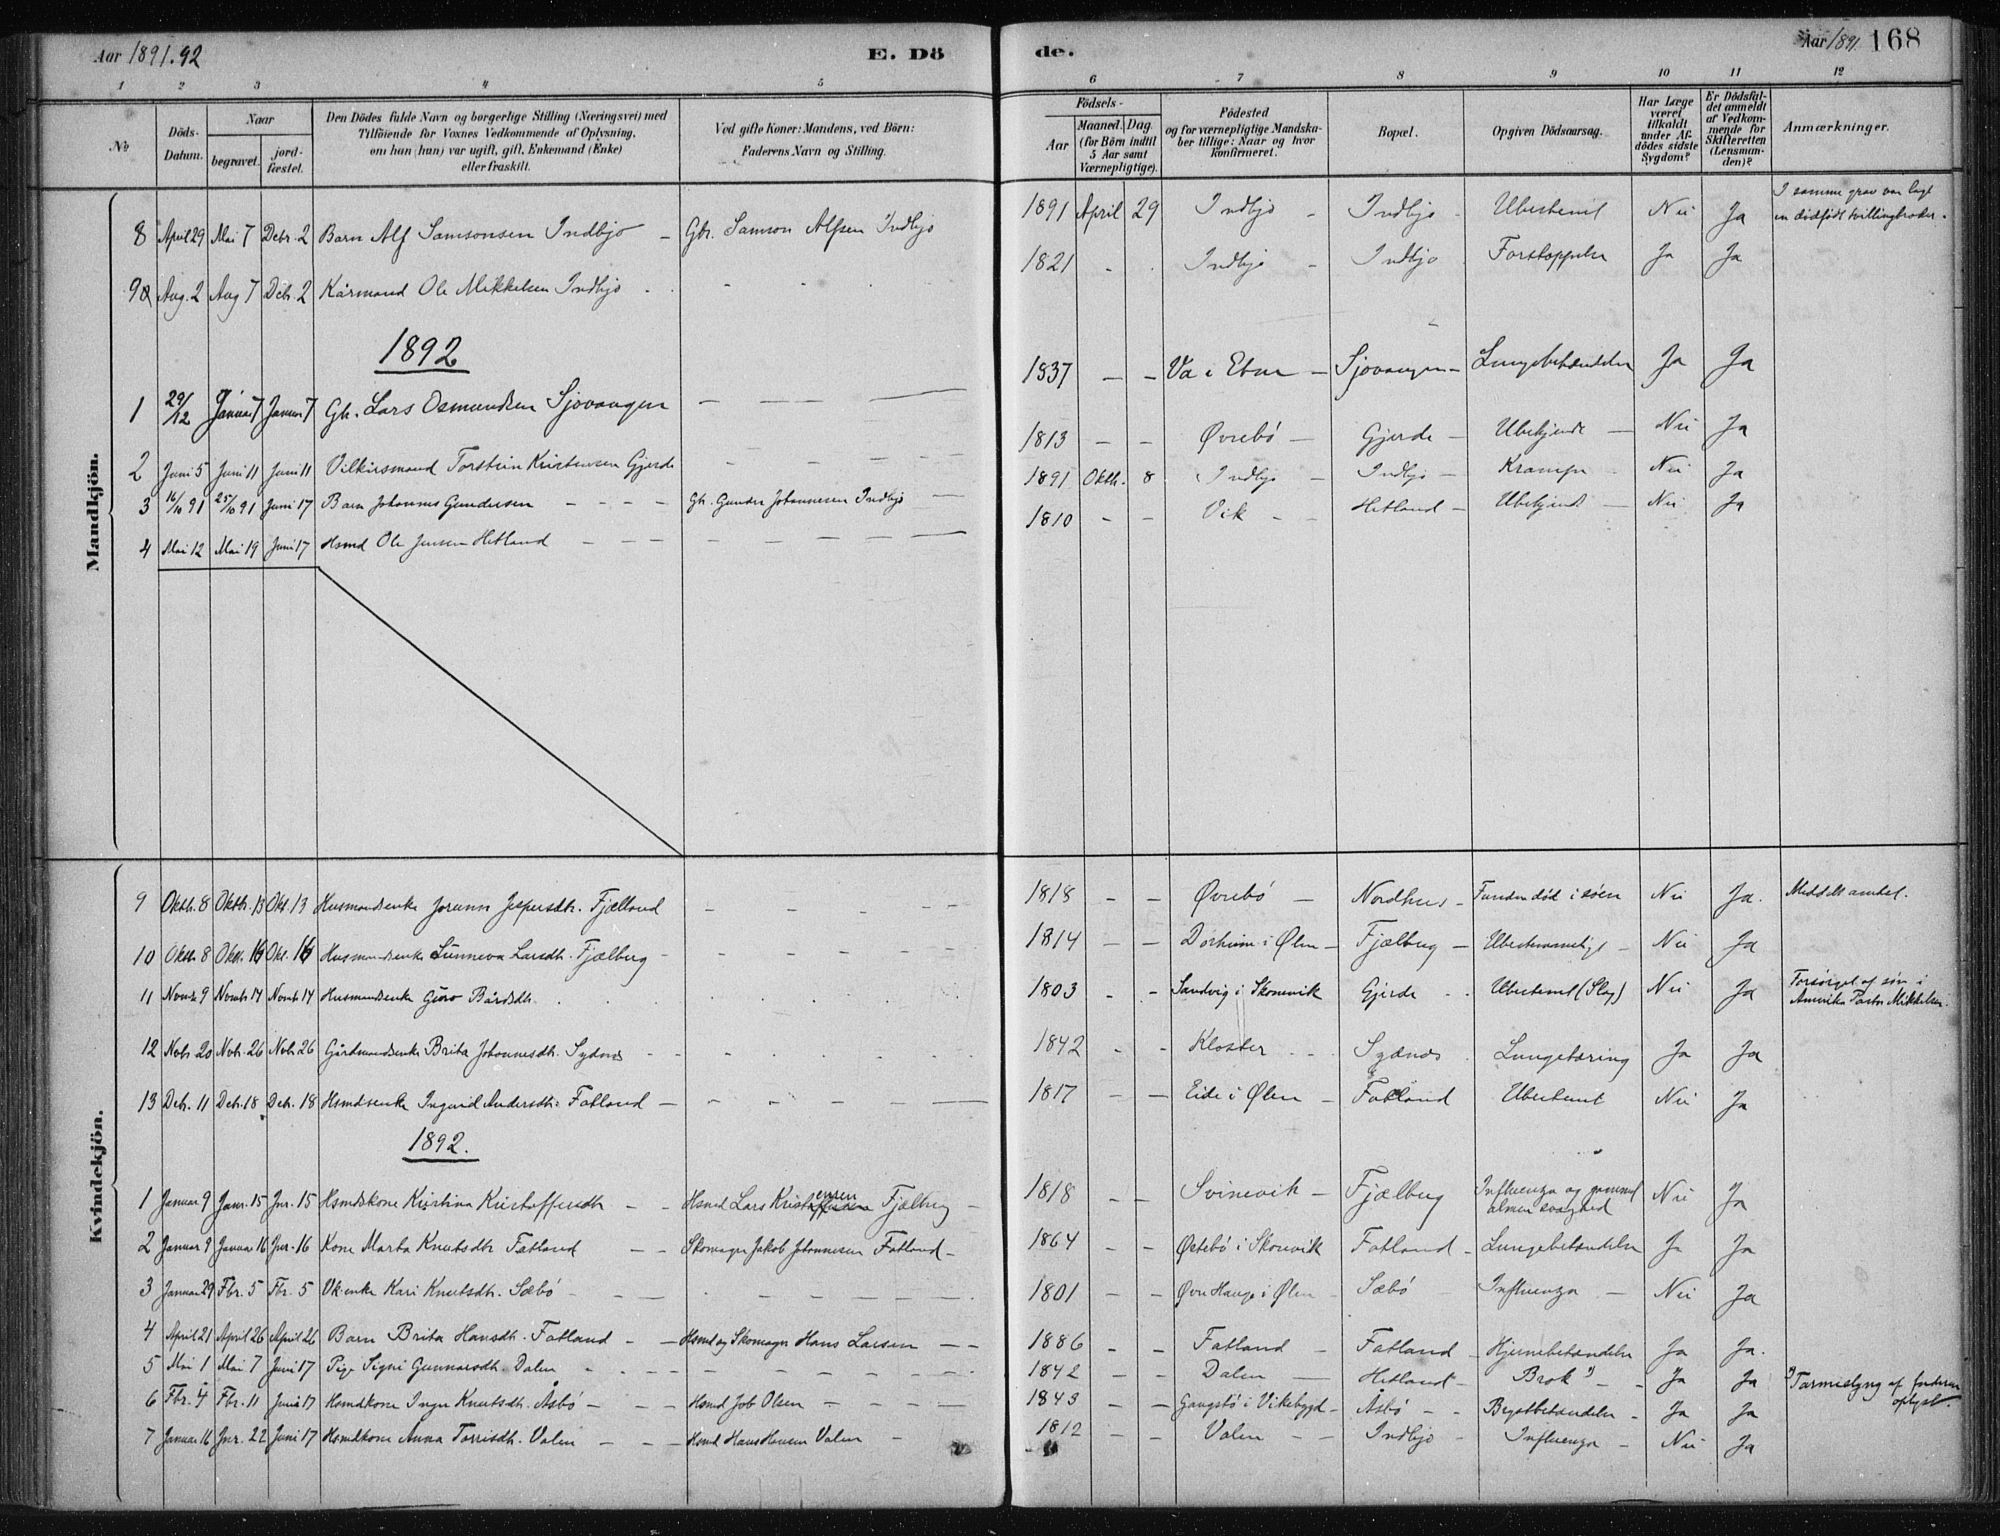 Aar 1891.92 E. Dö
de. Aar 1891 168
1 2 3 4 5
6 7 8 9 10 11 12
No
Döds-Datum.
Naar
begravet.
jord-fæstet.
Den Dödes fulde Navn og borgerlige Stilling (Næringsvei) med
Tilföiende for Voxnes Vedkommende af Oplysning,
om han (hun) var ugift, gift, Enkemand (Enke)
eller fraskilt.
Ved gifte Koner: Mandens, ved Börn:
Faderens Navn og Stilling.
Födsels-
Aar
Maaned. Dag.
(for Börn indtil
5 Aar samt
Værnepligtige).
Födested
og for værnepligtige Mandska-
ber tillige: Naar og hvor
konfirmeret.
Bopæl.
Opgiven Dödsaarsag.
Har Læge
været
tilkaldt
under Af-
dödes sidste
Sygdom?
Er Dödsfal-
det anmeldt
af Vedkom-
mende for
Skifteretten
(Lensman-
den)?
Anmærkninger.
Mandkjön.
8 April 29 Mai 7 Debr. 2 Barn Alf Samsonsen Indbjo – Gbr. Samson Alfsen Indbjo
1891 April 29 Indbjo Indbjo Ubestemt Nei Ja I samme grav var lagt
en dødfødt tvillingbroder.
9 Aug. 2 Aug 7 Debr. 2 Kårmand Ole Mikkelsen Indbjo
1821 Indbjo Indbjo Forstoppelse Ja Ja
1892
1 29/12 Januar 7 Januar 7 Gbr. Lars Osmundsen Sjovangen
1837 Va i Etne Sjovangen Lungebetændelse Ja Ja
2 Juni 5 Juni 11 Juni 11 Vilkårsmand Torstein Kristensen Gjerde
1813 Øvrebö Gjerde Ubekjendt Nei Ja
3 16/10 91 25/10 91 Juni 17 Barn Johannes Gundersen Gbr. Gunder Johannesen Indbjo
1891 Oktbr. 8 Indbjo Indbjo Krampe Nei Ja
4 Mai 12 Mai 19 Juni 17 Hsmd Ole Jensen Hetland
1810 Vik Hetland Ubekjendt Nei Ja
Kvindekjön.
9 Oktb. 8 Oktb. 13 Okt. 13 Husmandsenke Jorunn Jespersdtr. Fjelland
1818 Øvrebö Nordhus Funden død i søen Nei Ja. Meddelt amtet.
10 Oktb 8 Okt. 16 Okt. 16 Husmandsenke Sunneva Larsdtr. Fjælberg
1814 Dorheim i Ølen Fjælberg Ubestemmelige Nei Ja
11 Novbr 9 Novbr 14 Novbr 14 Husmandsenke Guro Bårdsdtr.
1803 Sandvig i Skonevik Gjerde Ubestemt (Slag) Nei Ja Forsørget af søn i
Amerika Mikkelsen.
12 Nobr. 20 Nobr. 26 Nobr. 26 Gårdmandsenke Brita Johannesdtr. Sydnes
1842 Kloster Sydnes Lungetæring Ja Ja
13 Debr. 11 Debr. 18 Debr. 18 Hsmdsenke Ingerid Andersdtr: Fatland
1817 Eide i Ølen Fatland Ubestemt Nei Ja
1892.
1 Januar 9 Janr. 15 Jnr. 15 Hsmdskone Kristina Kristoffersdtr Hsmd Lars Kristensen Fjælberg
1818 Svinevik Fjælberg Influenza og gammel
almen svaghed Nei Ja
2 Januar 9 Januar 16 Jnr. 16 Kone Marta Knutsdtr Fatland Skomager Jakob Johannesen Fatland
1864 Østebö i Skonevik Fatland Lungebetændelse Ja Ja
3 Januar 29 Fbr. 5 Fbr. 5 Vk.enke Kari Knutsdtr. Sæbö
1801 Øvre Hauge i Ølen Sæbö Influenza Nei Ja
4 April 21 April 26 April 26 Barn Brita Hansdtr. Fatland Hsmd og Skomager Hans Larsen
1886 Fatland Fatland Hjernebetændelse Ja Ja.
5 Mai 1 Mai 7 Juni 17 Pige Signi Gunnarsdtr. Dalen
1842 Dalen Hetland Brok *) Ja Ja *) Tarmslyng af
oplyst.
6 Fbr. 4 Fbr. 11 Juni 17 Hsmdkone Inger Knutsdtr. Åsbö Hsmd Job Olsen
1843 Gangstö i Vikebygd Åsbö Brystbetændelse Ja Ja
7 Januar 16 Jnr. 22 Juni 17 Hsmdkone Anna Torrisdtr. Valen Hsmd Hans Hansen Valen
1812 Valen Indbjo Influenza Nei Ja